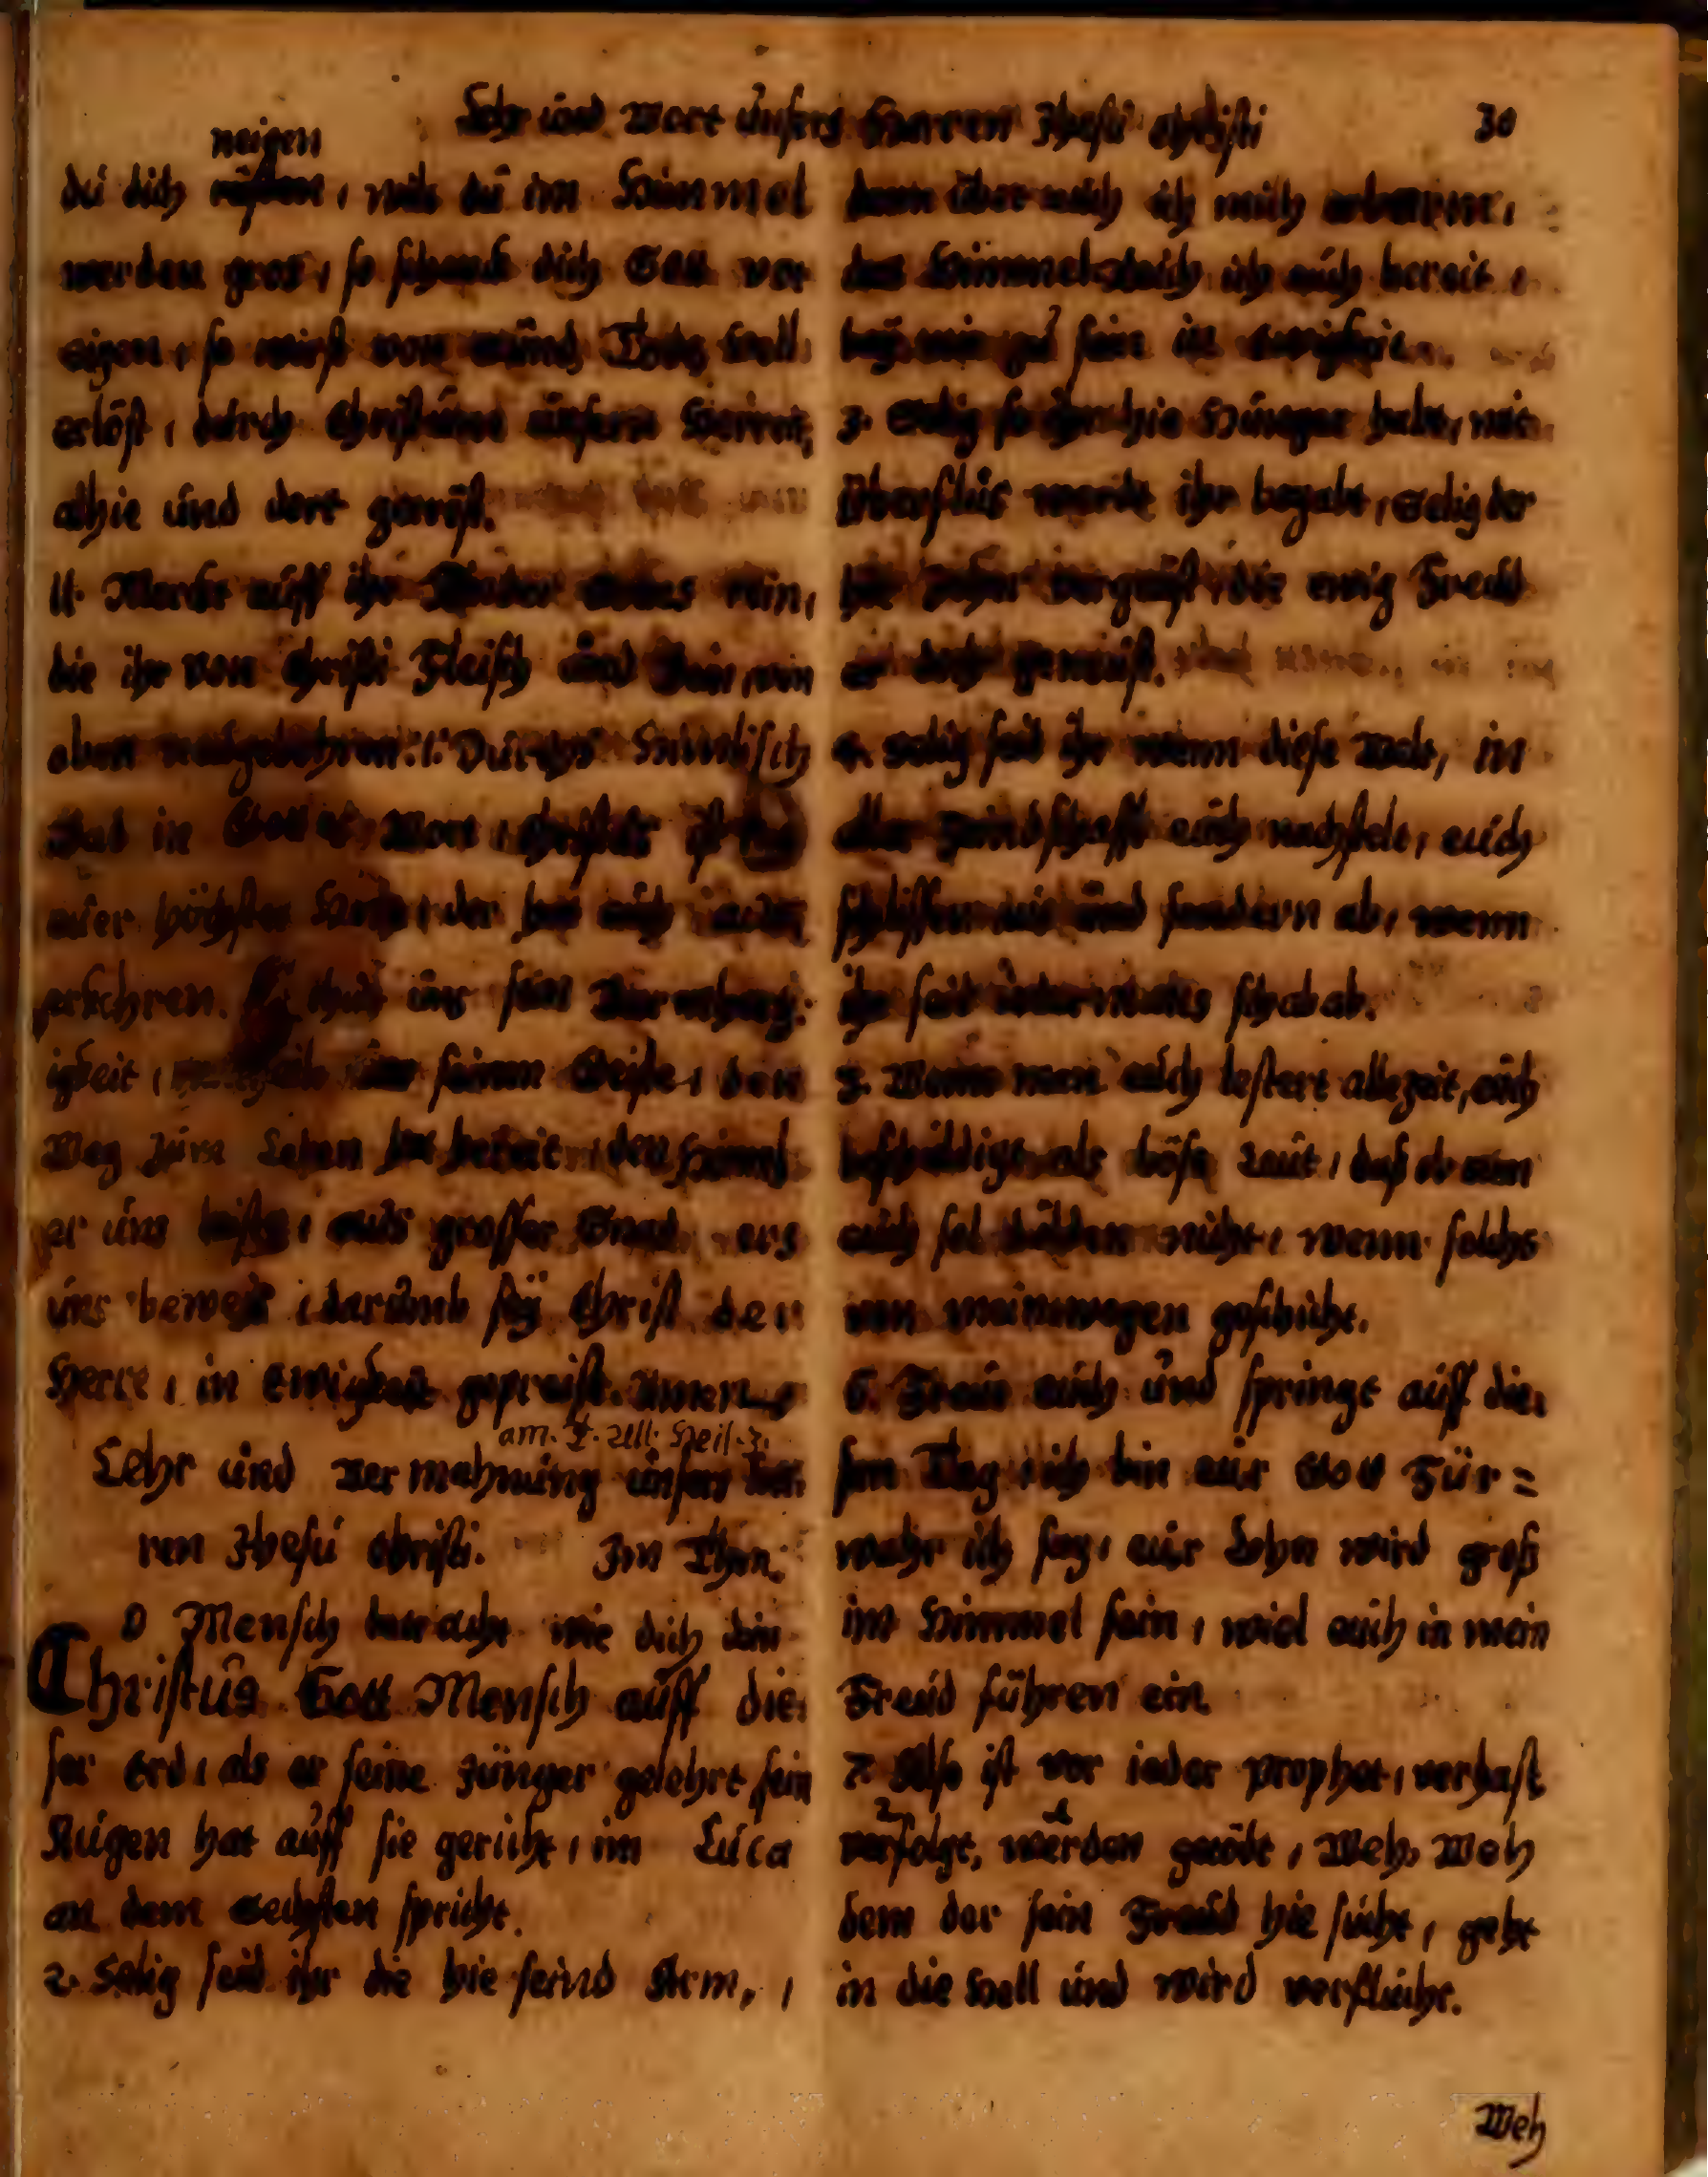 Lehr und Wort unsers Herren Jhesu Christi 30
neigen
du dich , wils du im Himmel
werden gros, so schenck dich Gott vor
eigen, so wirst von Todt Hell
erlöst, durch Christum unsern Herren,
alhie und dort getröst.
11. Merckt auff ihr Kinder Gottes rein,
die ihr von Christi Fleisch und Bein, von
oben neugebohren :/: Durchs Himlisch
Bad in Gottes Wort, Christus ist
euer höchster Hort, der hat euch
erkohren. Er thut uns sein Barmhertz:
igkeit, seinem Geiste, den
Weg zum Leben hat bereit, den Himel
er uns leiste, aus grosser Gnad, ers
uns beweist, darumb sey Christ der
Herre, in Ewigkeit gepreist. Amen
am. F. All. Heil. 3.
Lehr und Vermahnung unsers Her
ren Jhesu Christi. Im Thon.
O Mensch betracht wie dich dein
Christus Gott Mensch auff die:
ser Erd, als er seine Jünger gelehrt sein
Augen hat auff sie gericht, im Luca
an dem Sechsten spricht.
2. Selig seid ihr die hie seind Arm, ,
denn über euch ich mich erbarm,
das Himmelreich ich euch bereit,
bey mir zu sein in Ewigkeit.
3. Selig so ihr hie Hunger habt, mit
Uberflus werdt ihr begabt, Selig der
hie Zeher vergeust, die ewig Freud
er dort geneust.
4. Selig seid ihr wenn diese Welt, in
aller Feindschafft euch nachstelt, euch
schlissen aus und sondern ab, wenn
ihr seit schabab.
5. Wenn man euch lestert allezeit, euch
beschuldigt als böse Leut, daß drumb
euch sol dulden nicht, wenn solchs
von meintwegen geschicht.
6. Freut euch und springt auff die:
sen Tag, ich bin eur Gott Für=
wahr ich sag, eur Lohn wird groß
im Himmel sein, wiel euch in mein
Freud führen ein.
7. Also ist vor ieder Prophet, verhast
2 1
verfolgt, worden getödt, Weh, Weh
dem der sein Freud hie sucht, geht
in die Hell und wird verflucht.
Weh